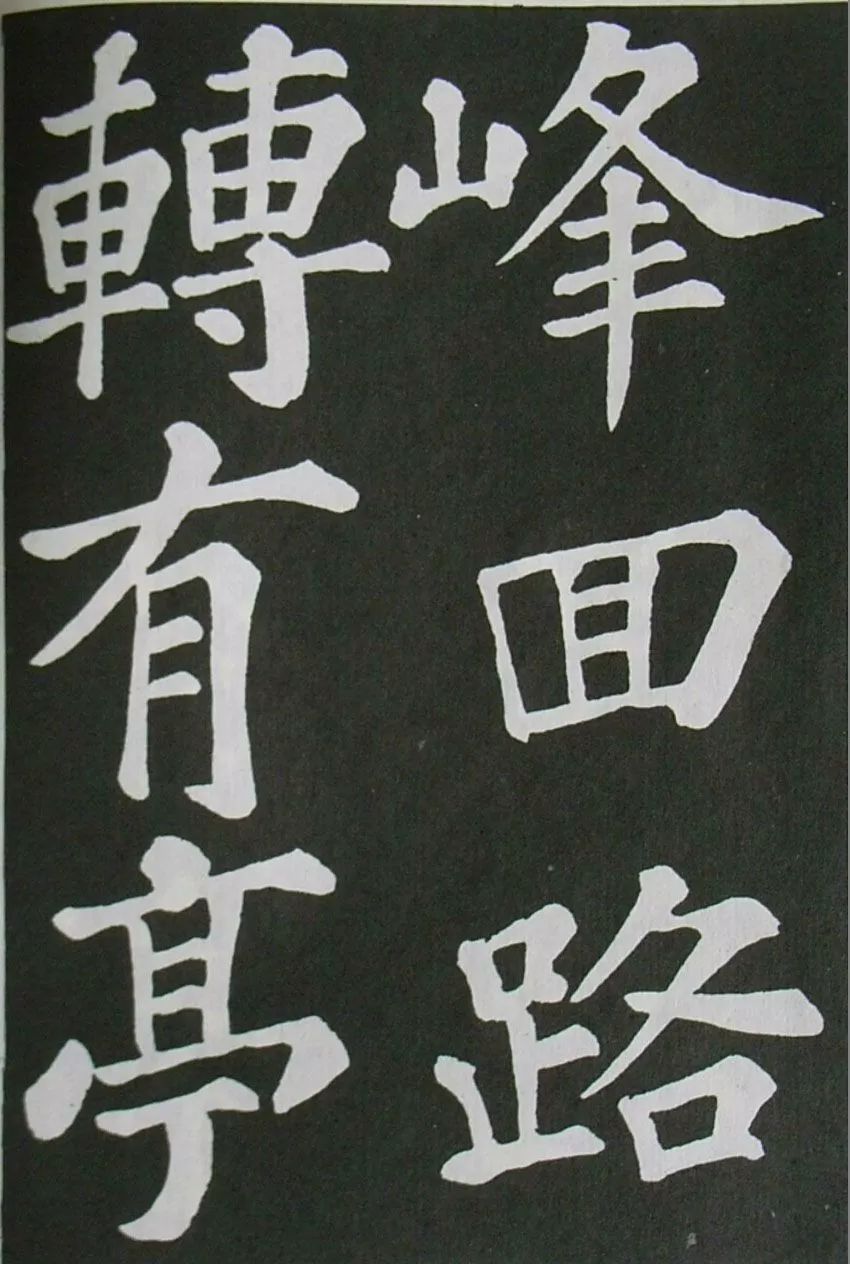 峰囬路
轉有亭